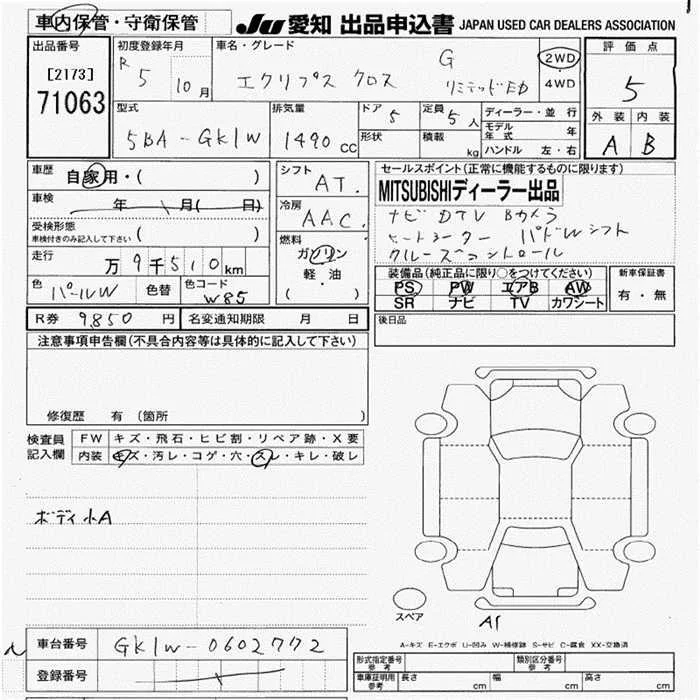 車内保管・守衛保管
JU 愛知 出品申込書 JAPAN USED CAR DEALERS ASSOCIATION
出品番号
[2173]
71063
初度登録年月
R 5 10月
車名・グレード
エクリプス クロス G リミテッドED
2WD
4WD
評価点
5
外装 内装
A B
型式
5BA-GK1W
排気量
1490 cc
ドア 5
形状
定員 5人
積載 kg
ディーラー・並行
モデル年式 年
ハンドル 左・右
車歴 自家用・( )
車検 年 月( 日)
受検形態
車検付きのみ記入して下さい ( )
走行 万9千510km
色 パールW 色替 色コード W85
シフト AT.
冷房 AAC.
燃料 ガソリン
軽・油
( )
セールスポイント(正常に機能するものに限ります)
MITSUBISHIディーラー出品
ナビ DTV Bカメラ
シートヒーター パドルシフト
クルーズコントロール
装備品(純正品に限り○をつけてください)
PS PW エアB AW
SR ナビ TV カワシート
新車保証書
有・無
R券 9,850円 名変通知期限 月 日
後日品
注意事項申告欄(不具合内容等は具体的に記入して下さい)
修復歴 有 (箇所 )
検査員記入欄
FW キズ・飛石・ヒビ割・リペア跡・X要
内装 キズ・汚レ・コゲ・穴・スレ・キレ・破レ
ボディ小A
スペア
A1
A-キズ E-エクボ U-凹み W-補修跡 S-サビ C-腐食 XX-交換済
車台番号 GK1W-0602772
登録番号
形式指定番号 参考
類別区分番号 参考
車庫証明用 参考 長さ cm 幅 cm 高さ cm